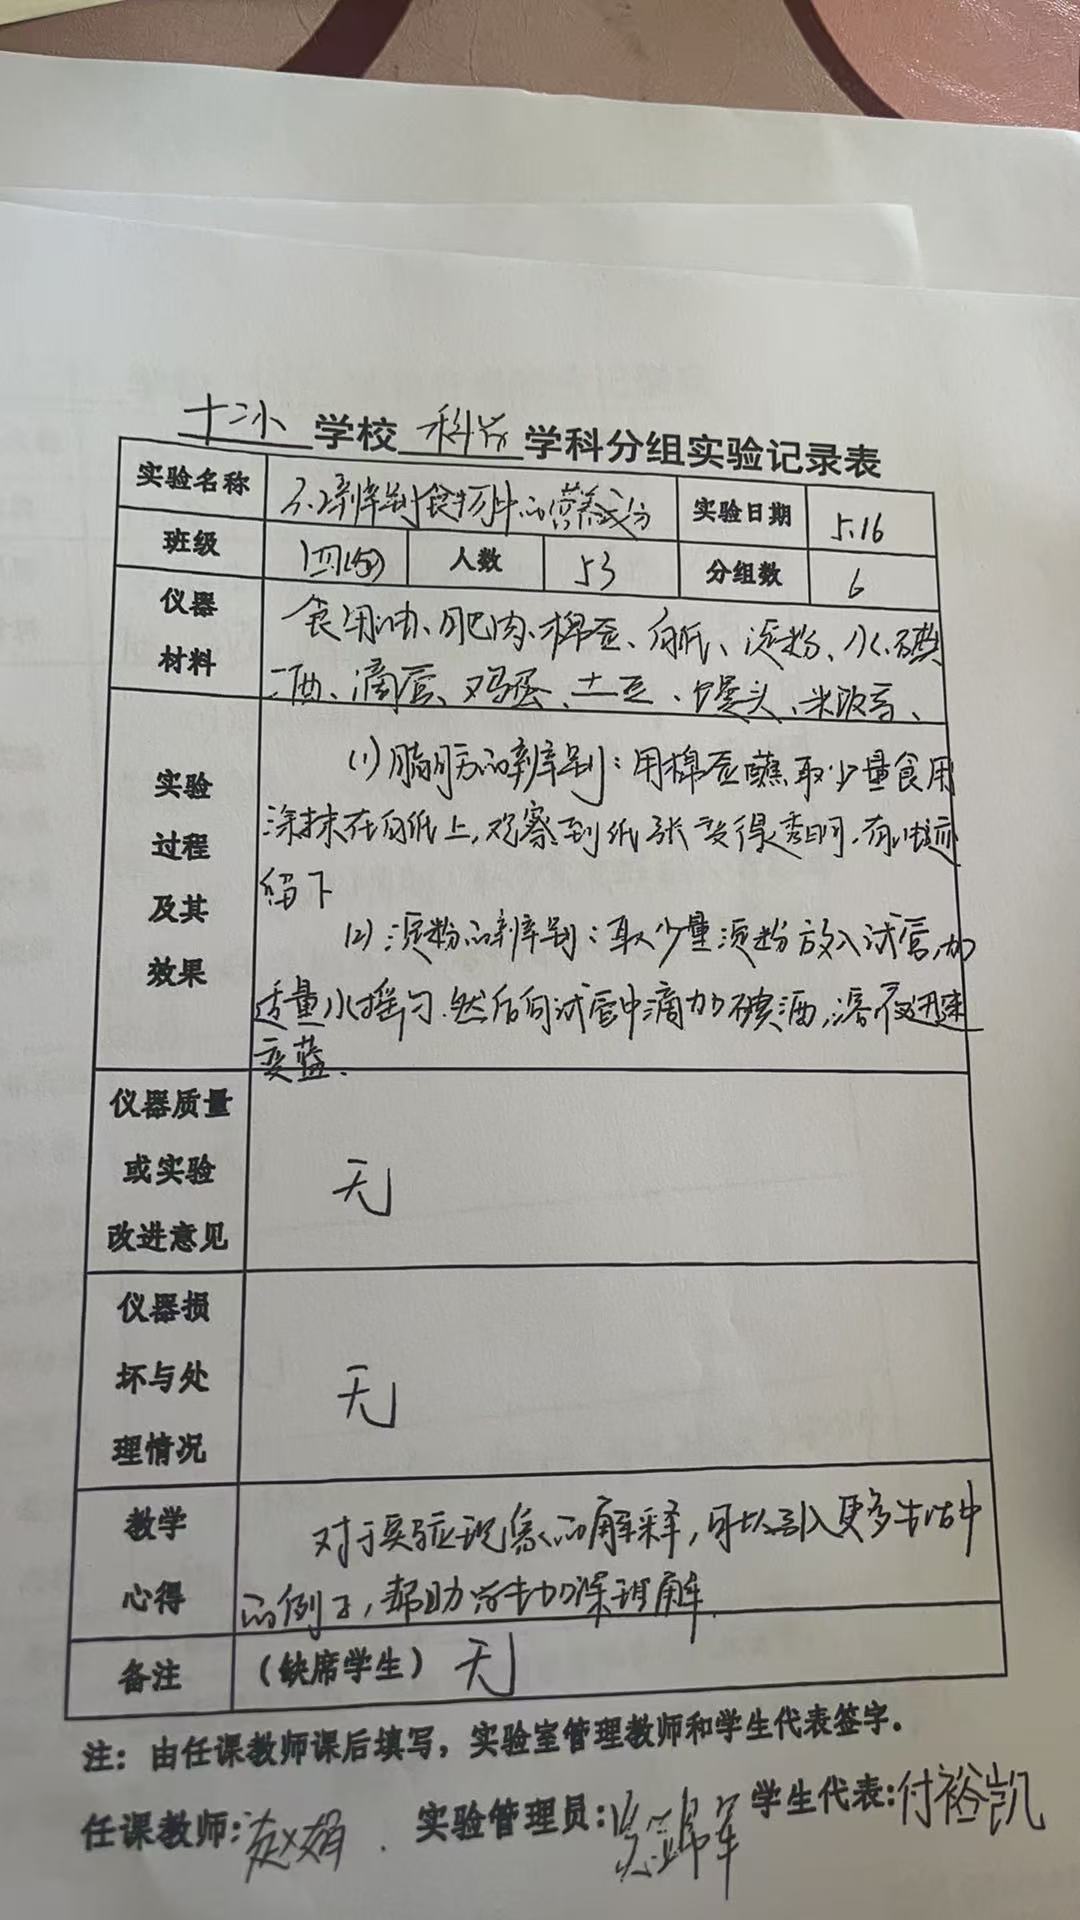 十二小学校 科学 学科分组实验记录表
实验名称 3.2辨别食物中的营养成分 实验日期 5.16
班级 四 人数 53 分组数 6
仪器材料 食用油、肥肉、棉签、白纸、淀粉、水、碘
酒、滴管、鸡蛋、土豆、馒头、米饭等、
实验过程及其效果 (1)脂肪的辨别：用棉签蘸取少量食用
涂抹在白纸上，观察到纸张变得透明，有油迹
留下
(2)淀粉的辨别：取少量淀粉放入试管，加
适量水摇匀.然后向试管中滴加碘酒，溶液迅速
变蓝.
仪器质量或实验改进意见 无
仪器损坏与处理情况 无
教学心得 对于实验现象的解释，可以引入更多生活中
的例子，帮助学生加深理解.
备注 （缺席学生）无
注：由任课教师课后填写，实验室管理教师和学生代表签字。
任课教师:赵娟. 实验管理员: 学生代表:付裕凯